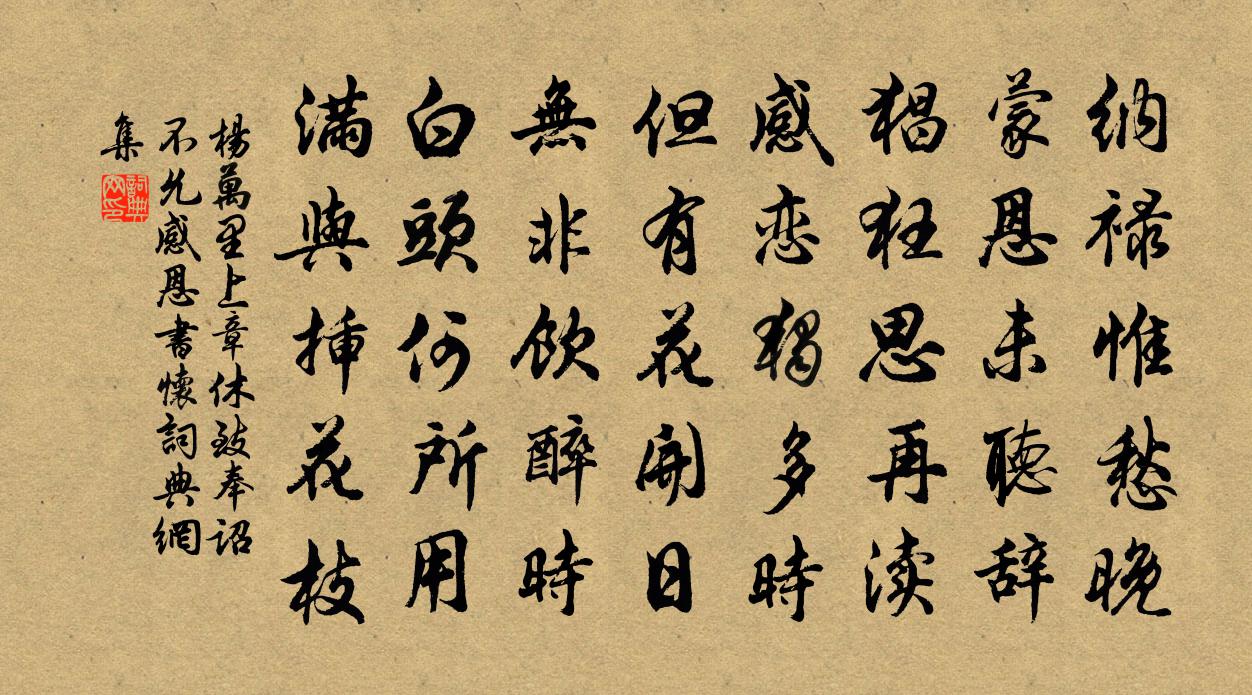 納禄惟愁晚
蒙恩未聽辞
猖狂思再渎
感恋獨多時
但有花開日
無非飲醉時
白頭何所用
满與挿花枝
楊萬里上章休致奉詔
不允感恩書懷詞典網
集
詞典網印